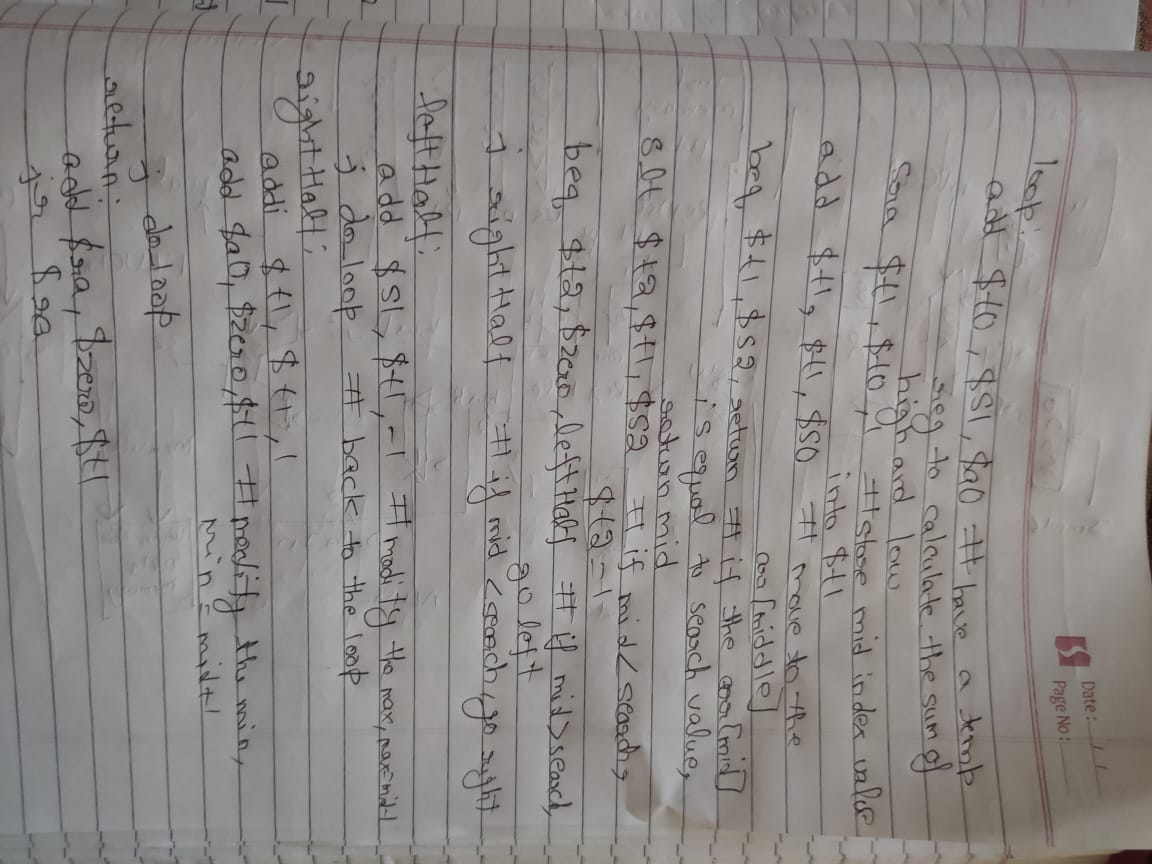 Date: / /
Page No:
loop:
add $t0, $s1, $a0 # have a temp
reg to calculate the sum of
high and low
sra $t1, $t0, 1 # store mid index value
into $t1
add $t1, $t1, $s0 # move to the
arr[middle]
beq $t1, $s2, return # if the arr[mid]
is equal to search value,
return mid
slt $t2, $t1, $s2 # if mid < search,
$t2 = 1
beq $t2, $zero, leftHalf # if mid > search,
go left
j rightHalf # if mid < search, go right
leftHalf:
add $s1, $t1, -1 # modify the max, max=mid-1
j do loop # back to the loop
rightHalf:
addi $t1, $t1, 1
add $a0, $zero, $t1 # modify the min,
min = mid+1
j do loop
return:
add $ra, $zero, $t1
jr $ra